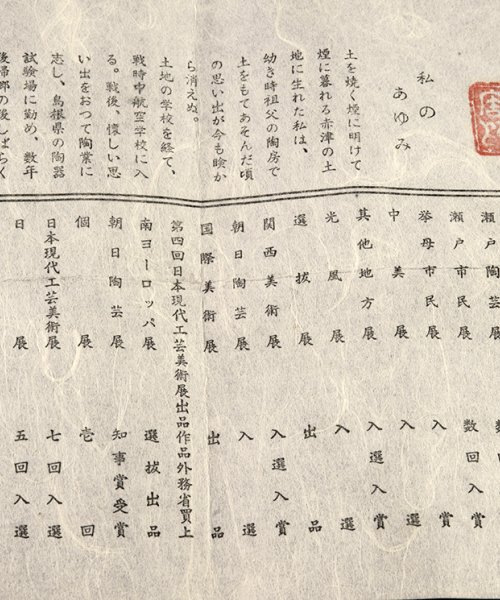 私の
あゆみ
土を焼く煙に明けて
煙に暮れる赤津の土
地に生れた私は、
幼き時祖父の陶房で
土をもてあそんだ頃
の思い出が今も瞼か
ら消えぬ。
土地の学校を経て、
戦時中航空学校に入
る。戦後、懐しい思
い出をおつて陶業に
志し、島根県の陶器
試験場に勤め、数年
後帰郷の後しばらく
瀬戸陶芸展 数回
瀬戸市民展 数回入賞
挙母市民展 入選
中美展 入選
其他地方展 入選入賞
光風展 入選
選抜展 出品
関西美術展 入選入賞
朝日陶芸展 入選
国際美術展 出品
第四回日本現代工芸美術展出品作品外務省買上
南ヨーロッパ展 選抜出品
朝日陶芸展 知事賞受賞
個展 壱回
日本現代工芸美術展 七回入選
日展 五回入選